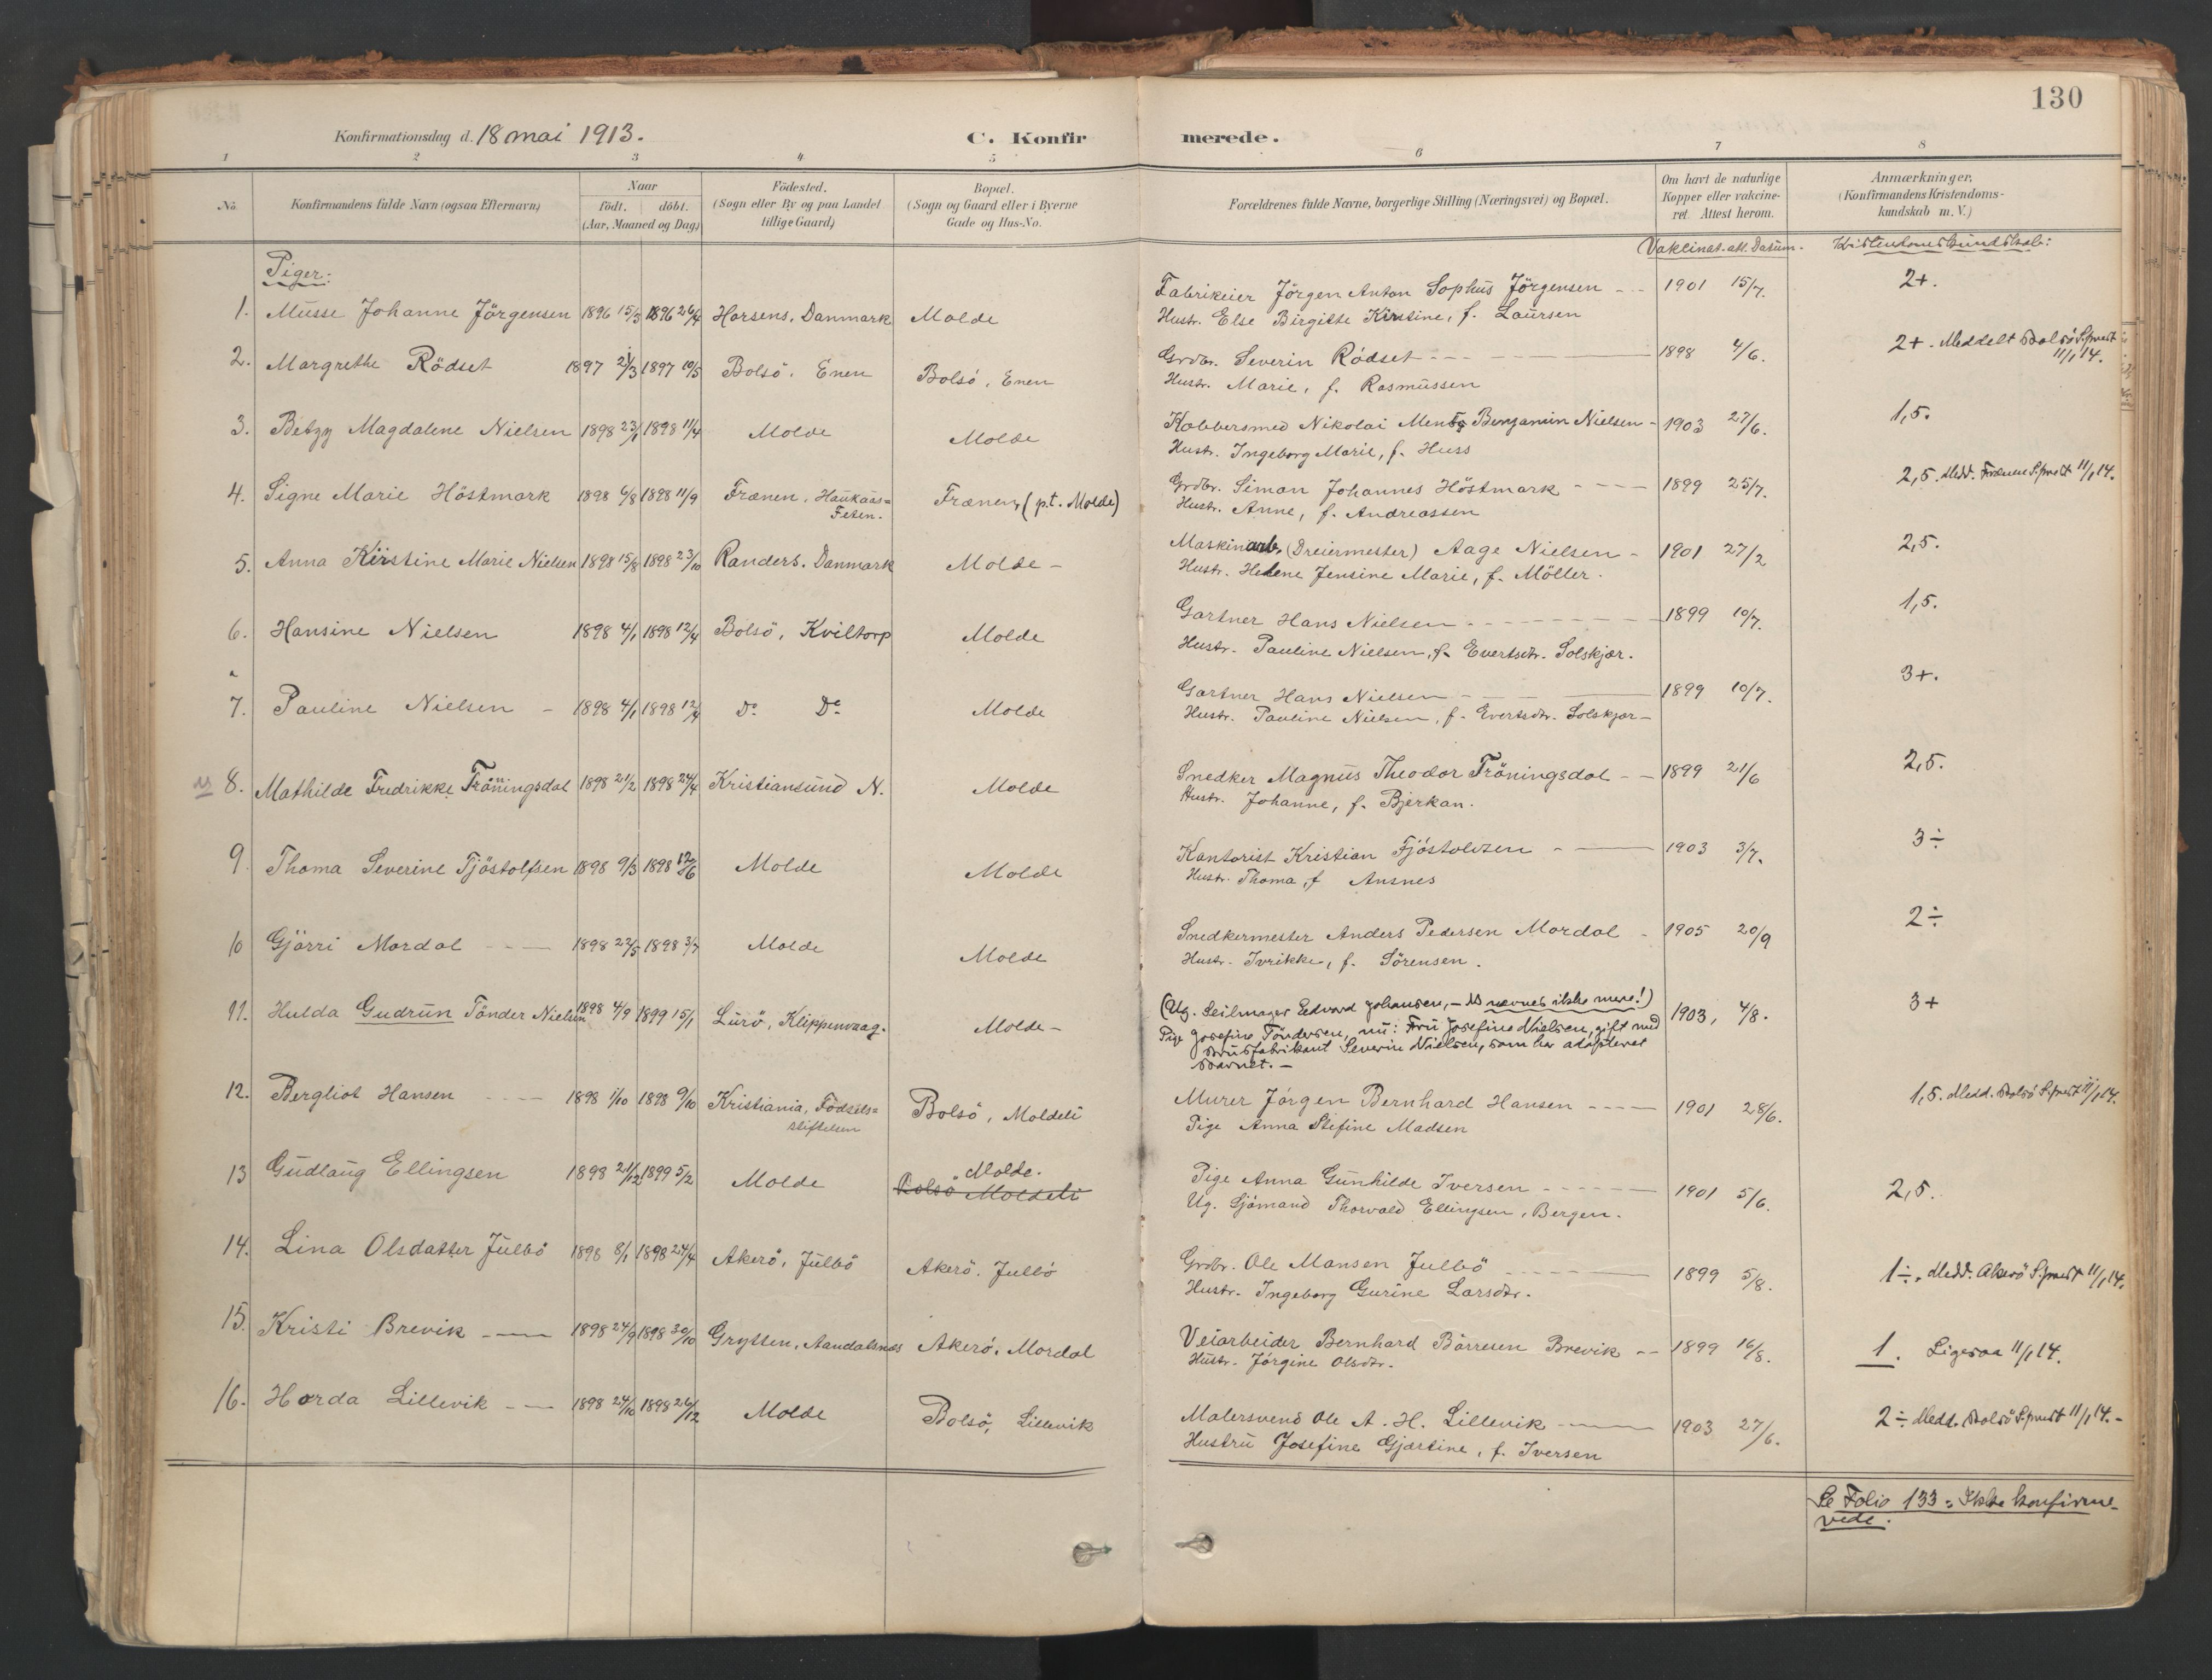 130
Konfirmationsdag d. 18 mai 1913.
C. Konfirmerede.
1 2 3 4 5 6 7 8
No.
Konfirmandens fulde Navn (ogsaa Efternavn)
Naar
födt. döbt.
(Aar, Maaned og Dag)
Födested.
(Sogn eller By og paa Landet
tillige Gaard)
Bopæl.
(Sogn og Gaard eller i Byerne
Gade og Hus-No.
Forældrenes fulde Navne, borgerlige Stilling (Næringsvei) og Bopæl.
Om havt de naturlige
Kopper eller vakcine-
ret. Attest herom.
Anmærkninger.
(Konfirmandens Kristendoms-
kundskab m. V.)
Vakcinat. att. Datum.
Kristendomskundskab:
Piger:
1. Musse Johanne Jörgensen 1896 15/3 1896 26/4 Horsens, Danmark Molde Fabrikeier Jörgen Anton Sophus Jörgensen 1901 15/7. 2+.
Hustr. Else Birgitte Kirstine, f. Laursen
2. Margrethe Rödset 1897 2/3 1897 10/5 Bolsö, Enen Bolsö, Enen Grdbr. Severin Rödset 1898 4/6. 2+. Meddelt Bolsö S.prest
11/1 14.
Hustr. Marie, f. Rasmussen
3. Betzy Magdalene Nielsen 1898 23/1 1898 11/4 Molde Molde Kobbersmed Nikolai Mentz Benjamin Nielsen 1903 27/6. 1,5.
Hustr. Ingeborg Marie, f. Huss
4. Signe Marie Höstmark 1898 6/8 1898 11/9 Frænen, Haukaas= Frænen, (p.t. Molde) Grdbr. Simon Johannes Höstmark 1899 25/7. 2,5. Medd. Frænen S.prest 11/1 14.
Feten. Hustr. Anne, f. Andreassen
5. Anna Kirstine Marie Nielsen 1898 15/8 1898 23/10 Randers, Danmark Molde Maskinarb. (Dreiermester) Aage Nielsen 1901 27/2 2,5.
Hustr. Helene Jensine Marie, f. Möller.
6. Hansine Nielsen 1898 4/1 1898 12/4 Bolsö, Kviltorp Molde Gartner Hans Nielsen 1899 10/7. 1,5.
Hustr. Pauline Nielsen, f. Evertsdtr. Solskjær.
7. Pauline Nielsen 1898 4/1 1898 12/4 Do Do Molde Gartner Hans Nielsen 1899 10/7. 3+.
Hustr. Pauline Nielsen, f. Evertsdtr. Solskjær
8. Mathilde Fredrikke Fröningsdal 1898 21/2 1898 24/4 Kristiansund N. Molde Snedker Magnus Theodor Fröningsdal 1899 21/6 2,5.
Hustr. Johanne, f. Bjerkan.
9. Thoma Severine Fjöstolfsen 1898 9/3 1898 Molde Molde Kontorist Kristian Fjöstolvsen 1903 3/7. 3÷
Hustr. Thoma, f. Ansnes
10 Gjörri Mordal 1898 22/5 1898 3/7 Molde Molde Snedkermester Anders Pedersen Mordal 1905 20/9 2÷
Hustr. Ivrikke, f. Sörensen.
11. Hulda Gudrun Tönder Nielsen 1898 4/9 1899 15/1 Lurö, Klippenvaag. Molde (Ug. Seilmager Edvard Johansen, – nævnes ikke mere!) 1903, 4/8. 3+
Pige Josefine Töndersen, nu: Fru Josefine Nielsen, gift med
Brusfabrikant Severin Nielsen, som har adopteret
Barnet. –
12. Bergliot Hansen 1898 1/10 1898 9/10 Kristiania, Födsels= Bolsö, Moldeli Murer Jörgen Bernhard Hansen 1901 28/6. 1,5. Medd. Bolsö S.prest 11/1 14.
stiftelsen Pige Anna Stefine Madsen
13 Gudlaug Ellingsen 1898 21/12 1899 5/2 Molde Molde. Pige Anna Gunhilde Iversen 1901 5/6. 2,5.
Bolsö Moldeli Ug. Sjömand Thorvald Ellingsen, Bergen.
14. Lina Olsdatter Julbö 1898 8/1 1898 24/4 Akerö, Julbö Akerö. Julbö Grdbr. Ole Mansen Julbö 1899 5/8. 1÷. Medd. Akerö S.prest 11/1 14.
Hustr. Ingeborg Gurine Larsdtr.
15. Kristi Brevik 1898 24/9 1898 30/10 Grytten, Aandalsnæs Akerö, Mordal Veiarbeider Bernhard Börresen Brevik 1899 16/8. 1. Ligesaa 11/1 14.
Hustr. Jörgine Olsdtr.
16. Horda Lillevik 1898 24/10 1898 26/12 Molde Bolsö, Lillevik Malersvend Ole A. H. Lillevik 1903 27/6. 2÷ Medd. Bolsö S.prest 11/1 14.
Hustru Josefine Gjertine, f. Iversen
Se Folio 133: Ikke konfirme-
rede.